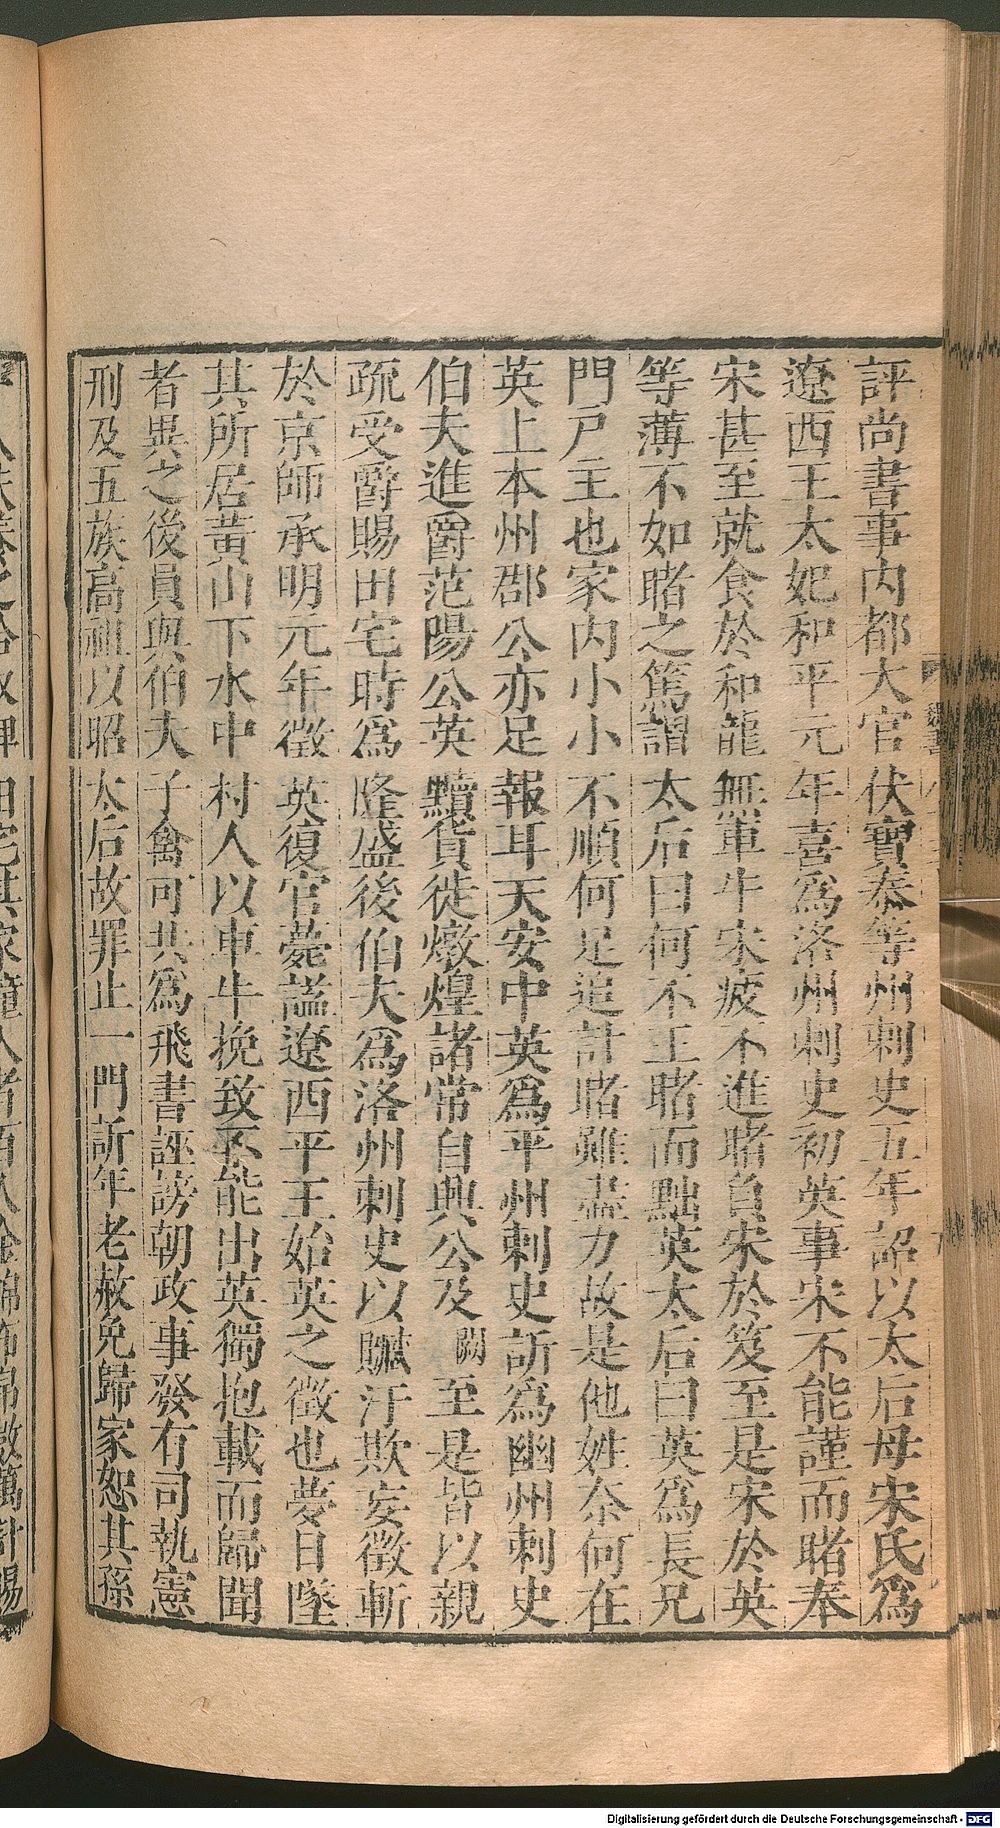 評尚書事內都大官伏寶泰等州刺史五年詔以太后母宋氏爲
遼西王太妃和平元年喜爲洛州刺史初英事宋不能謹而睹奉
宋甚至就食於和龍無車牛宋疲不進睹負宋於笈至是宋於英
等薄不如睹之篤謂太后曰何不王睹而黜英太后曰英爲長兄
門戶主也家內小小不順何足追計睹雖盡力故是他姓奈何在
英上本州郡公亦足報耳天安中英爲平州刺史訢爲幽州刺史
伯夫進爵范陽公英黷貨徙燉煌諸常自興公及闕至是皆以親
疏受爵賜田宅時爲隆盛後伯夫爲洛州刺史以贓汙欺妄徵斬
於京師承明元年徵英復官薨諡遼西平王始英之徵也夢日墜
其所居黃山下水中村人以車牛挽致不能出英獨抱載而歸聞
者異之後員與伯夫子禽可共爲飛書誣謗朝政事發有司執憲
刑及五族高祖以昭太后故罪止一門訢年老赦免歸家恕其孫
Digitalisierung gefördert durch die Deutsche Forschungsgemeinschaft - DFG